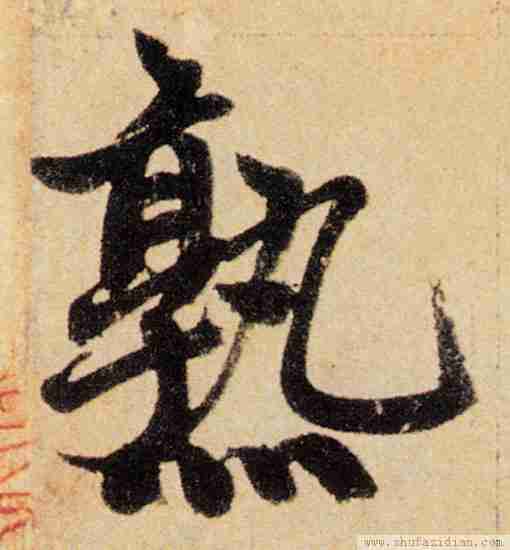 熟
www.shufazidian.com